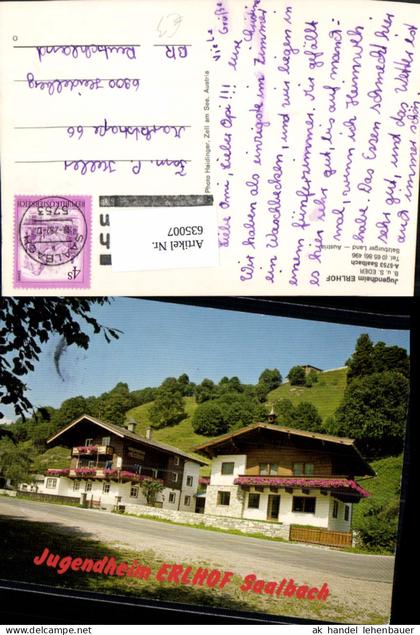 Liebe Omi, lieber Opi!!!
Wir haben als einzigste im Zimmer
ein Waschbecken, und wir liegen in
einem fünferzimmer. Mir gefällt
es hier sehr gut, bis auf manch-
mal, wenn ich Heimweh
hab. Das Essen schmeckt hier
sehr gut, und das Wetter ist
immer
Viele Grüße
eure
Fam. P.
66
6900 Heidelberg
BR
Deutschland
Photo Haidinger, Zell am See, Austria
Jugendheim ERLHOF
B. u. S. EDER
A-5753 Saalbach
Tel. (0 65 86) 496
Salzburger Land — Austria
REPUBLIK ÖSTERREICH
4 S
5753
SAALBACH
Artikel Nr.
635007
Jugendheim ERLHOF Saalbach
delcampe.net
ak handel lehenbauer